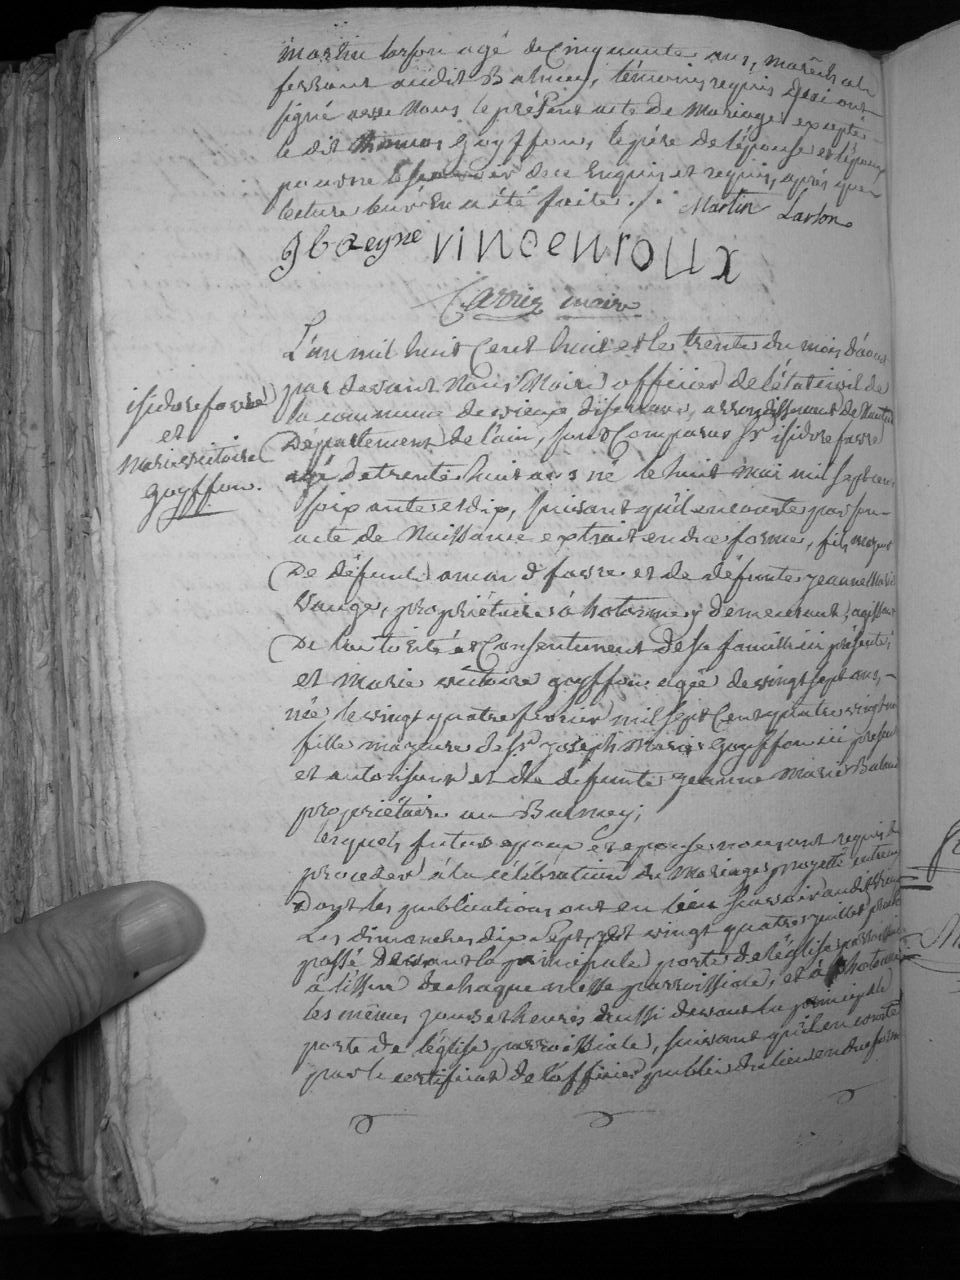 martin larson agé de Cinquante ans, maréchal
ferrant audit Balmey, témoins requis qui ont
signé avec Nous le présent acte de Mariage excepté
le dit Goyffon, le père de l'épouse et l'époux
pour ne le savoir de ce Enquis et requis, après que
lecture leur En a été faite ./.
Martin Larson
J b Reyne vincenroux
Carrier maire
L'an mil huit Cent huit et le trente du mois d'aout
par devant Nous Maire officier de l'état civil de
la commune de vieux disenave, arrondissement de Nantua
Département de l'ain, sont Comparus Sr isidore favre
agé de trente huit ans né le huit mai mil sept cent
soixante et dix, suivant qu'il en conste par son
acte de Naissance extrait en due forme, fils majeur
De défunt amand favre et de défunte jeanne Marie
vauge, propriétaire à hotonne y demeurant, agissant
De l'autorité et Consentement de sa famille ici présente,
et marie victoire goyffon agée de vingt sept ans,
née le vingt quatre février mil sept Cent quatre vingt un
fille majeure de Sr joseph Marie Goyffon ici présent
et autorisant et de defunte jeanne Marie Baland
propriétaire au Balmey;
lesquels futurs epoux et epouse nous ont requis de
proceder à la célébration du Mariage projetté entreux
Dont les publications ont eu lieu savoir audit vieux
Les dimanches dix sept, et vingt quatre juillet
passé devant la principale porte de l'église paroissiale
à l'issue de chaque messe parroissiale, et à hotonne
les mêmes jours et heures aussi devant la principale
porte de l'église parroissiale, suivant qu'il en conste
par le certificat de l'officier public du lieu en due forme
isidore favre
et
Marie victoire
goyffon.